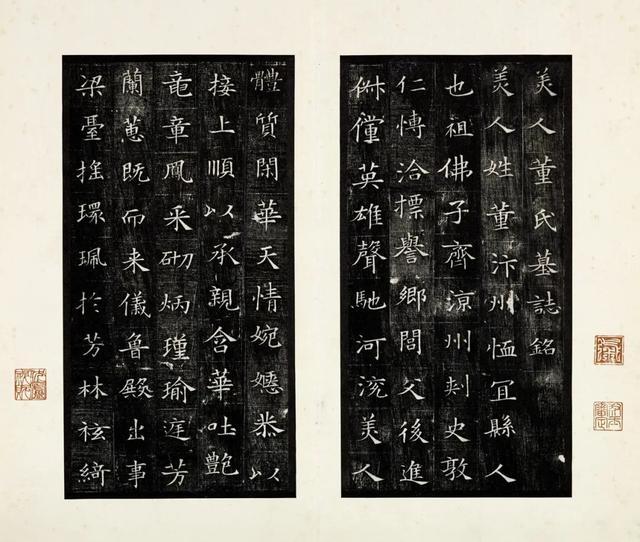 美人董氏墓誌銘
美人姓董汴州恤冝縣人
也祖佛子齊涼州刾史敦
仁慱洽摽譽鄉閭父後進
俶儻英雄聲馳河沇美人
體質閑華天情婉嬺恭以
接上順以承親含華吐艷
竜章鳳采砌炳瑾瑜庭芳
蘭蕙既而来儀魯殿出事
梁臺搖環珮於芳林袨綺